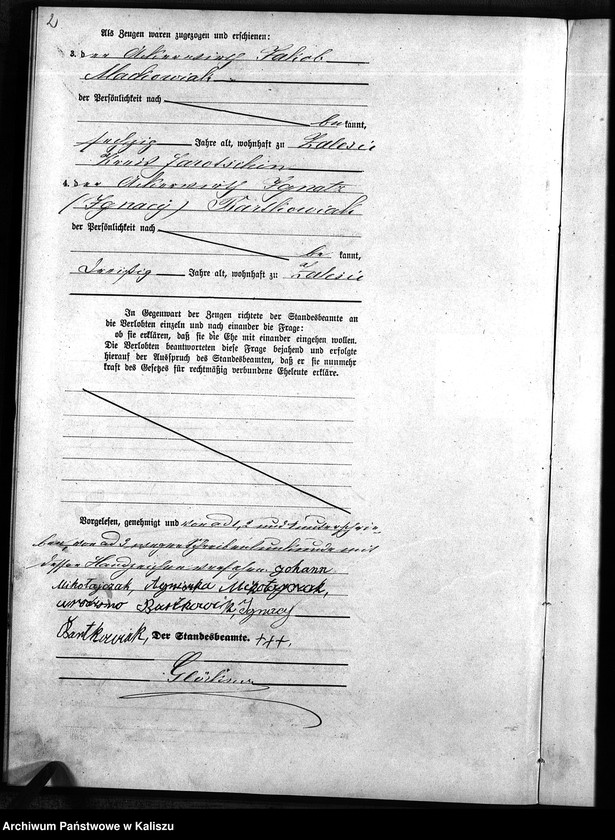 2
Als Zeugen waren zugezogen und erschienen:
3. der Ackerwirth Jakob
Maćkowiak
der Persönlichkeit nach
be kannt,
sechzig Jahre alt, wohnhaft zu Zalesie
Kreis Jarotschin
4. der Ackerwirth Ignatz
(Ignacy) Bartkowiak
der Persönlichkeit nach
be kannt,
dreißig Jahre alt, wohnhaft zu Zalesie
In Gegenwart der Zeugen richtete der Standesbeamte an
die Verlobten einzeln und nach einander die Frage:
ob sie erklären, daß sie die Ehe mit einander eingehen wollen.
Die Verlobten beantworteten diese Frage bejahend und erfolgte
hierauf der Ausspruch des Standesbeamten, daß er sie nunmehr
kraft des Gesetzes für rechtmäßig verbundene Eheleute erkläre.
Vorgelesen, genehmigt und von ad 1, 2 und 4 unterschrie-
ben, von ad 3 wegen Schreibensunkunde mit
dessen Handzeichen versehen Johann
Mikołajczak, Agnieszka Mikołajczak,
urodzono Bartkowiak, Ignacy
Bartkowiak, Der Standesbeamte. +++.